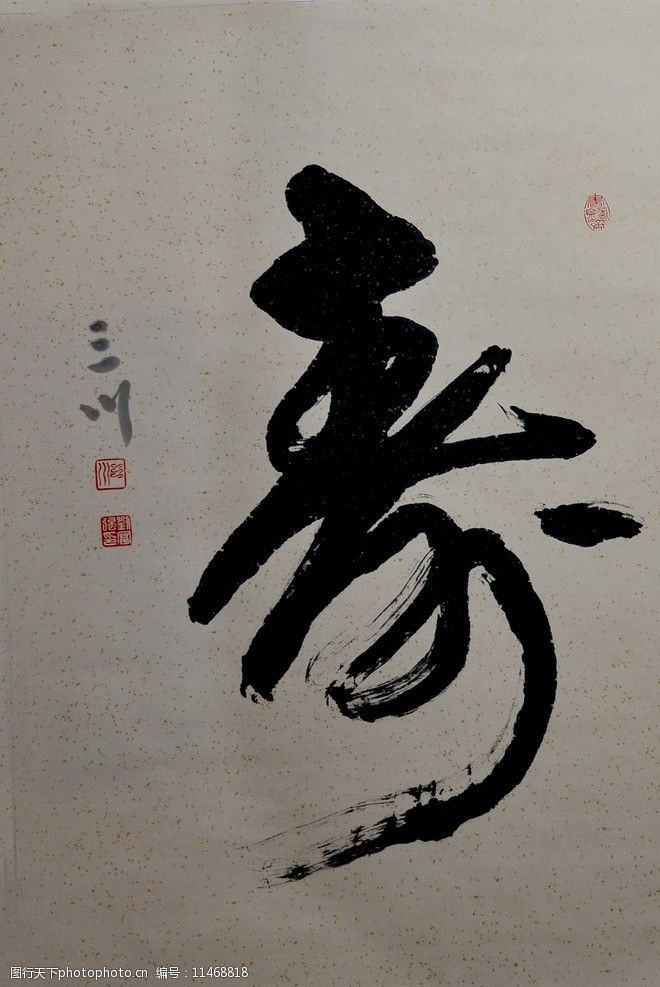 寿
三川
图行天下photophoto.cn 编号：11468818